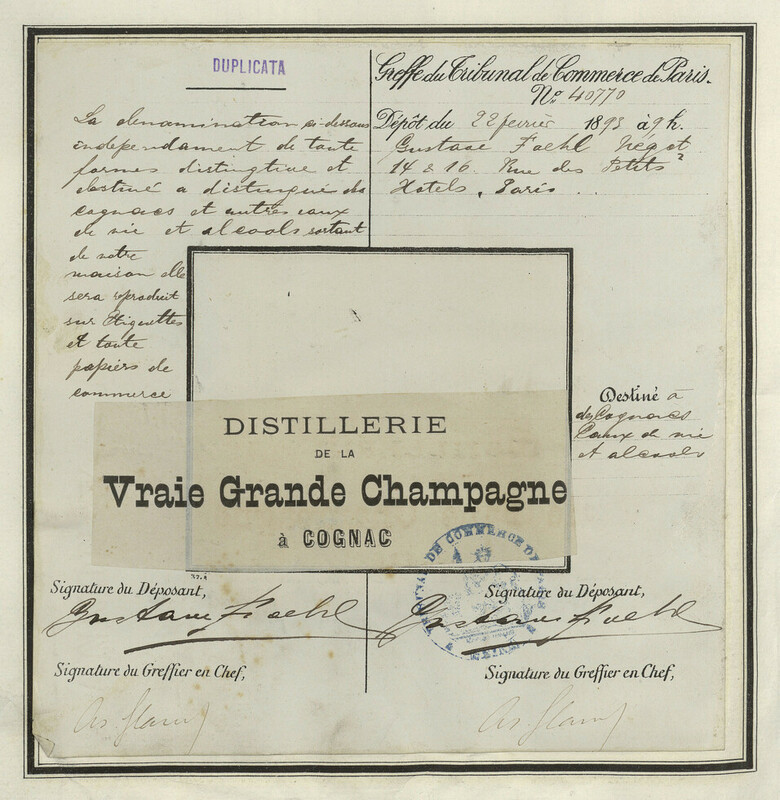 DUPLICATA
La denamination ci dessous
independament de toute
formes distingtive et
destiné a distingué des
cognacs et autres eaux
de vie et alcools sortant
de notre
maison elle
sera reproduit
sur Etiquettes
et toute
papiers de
commerce
Greffe du Tribunal de Commerce de Paris.
No. 40770
Dépôt du 22 fevrier 1893 à 9 h.
Gustave Foehl Négot
14 & 16. Rue des Petits
Hotels. Paris
DISTILLERIE
DE LA
Vraie Grande Champagne
à COGNAC
Destiné à
des Cognacs
Eaux de vie
et alcools
TRIBUNAL DE COMMERCE DE PARIS
Signature du Déposant,
Gustave Foehl
Signature du Greffier en Chef,
Signature du Déposant,
Gustave Foehl
Signature du Greffier en Chef,